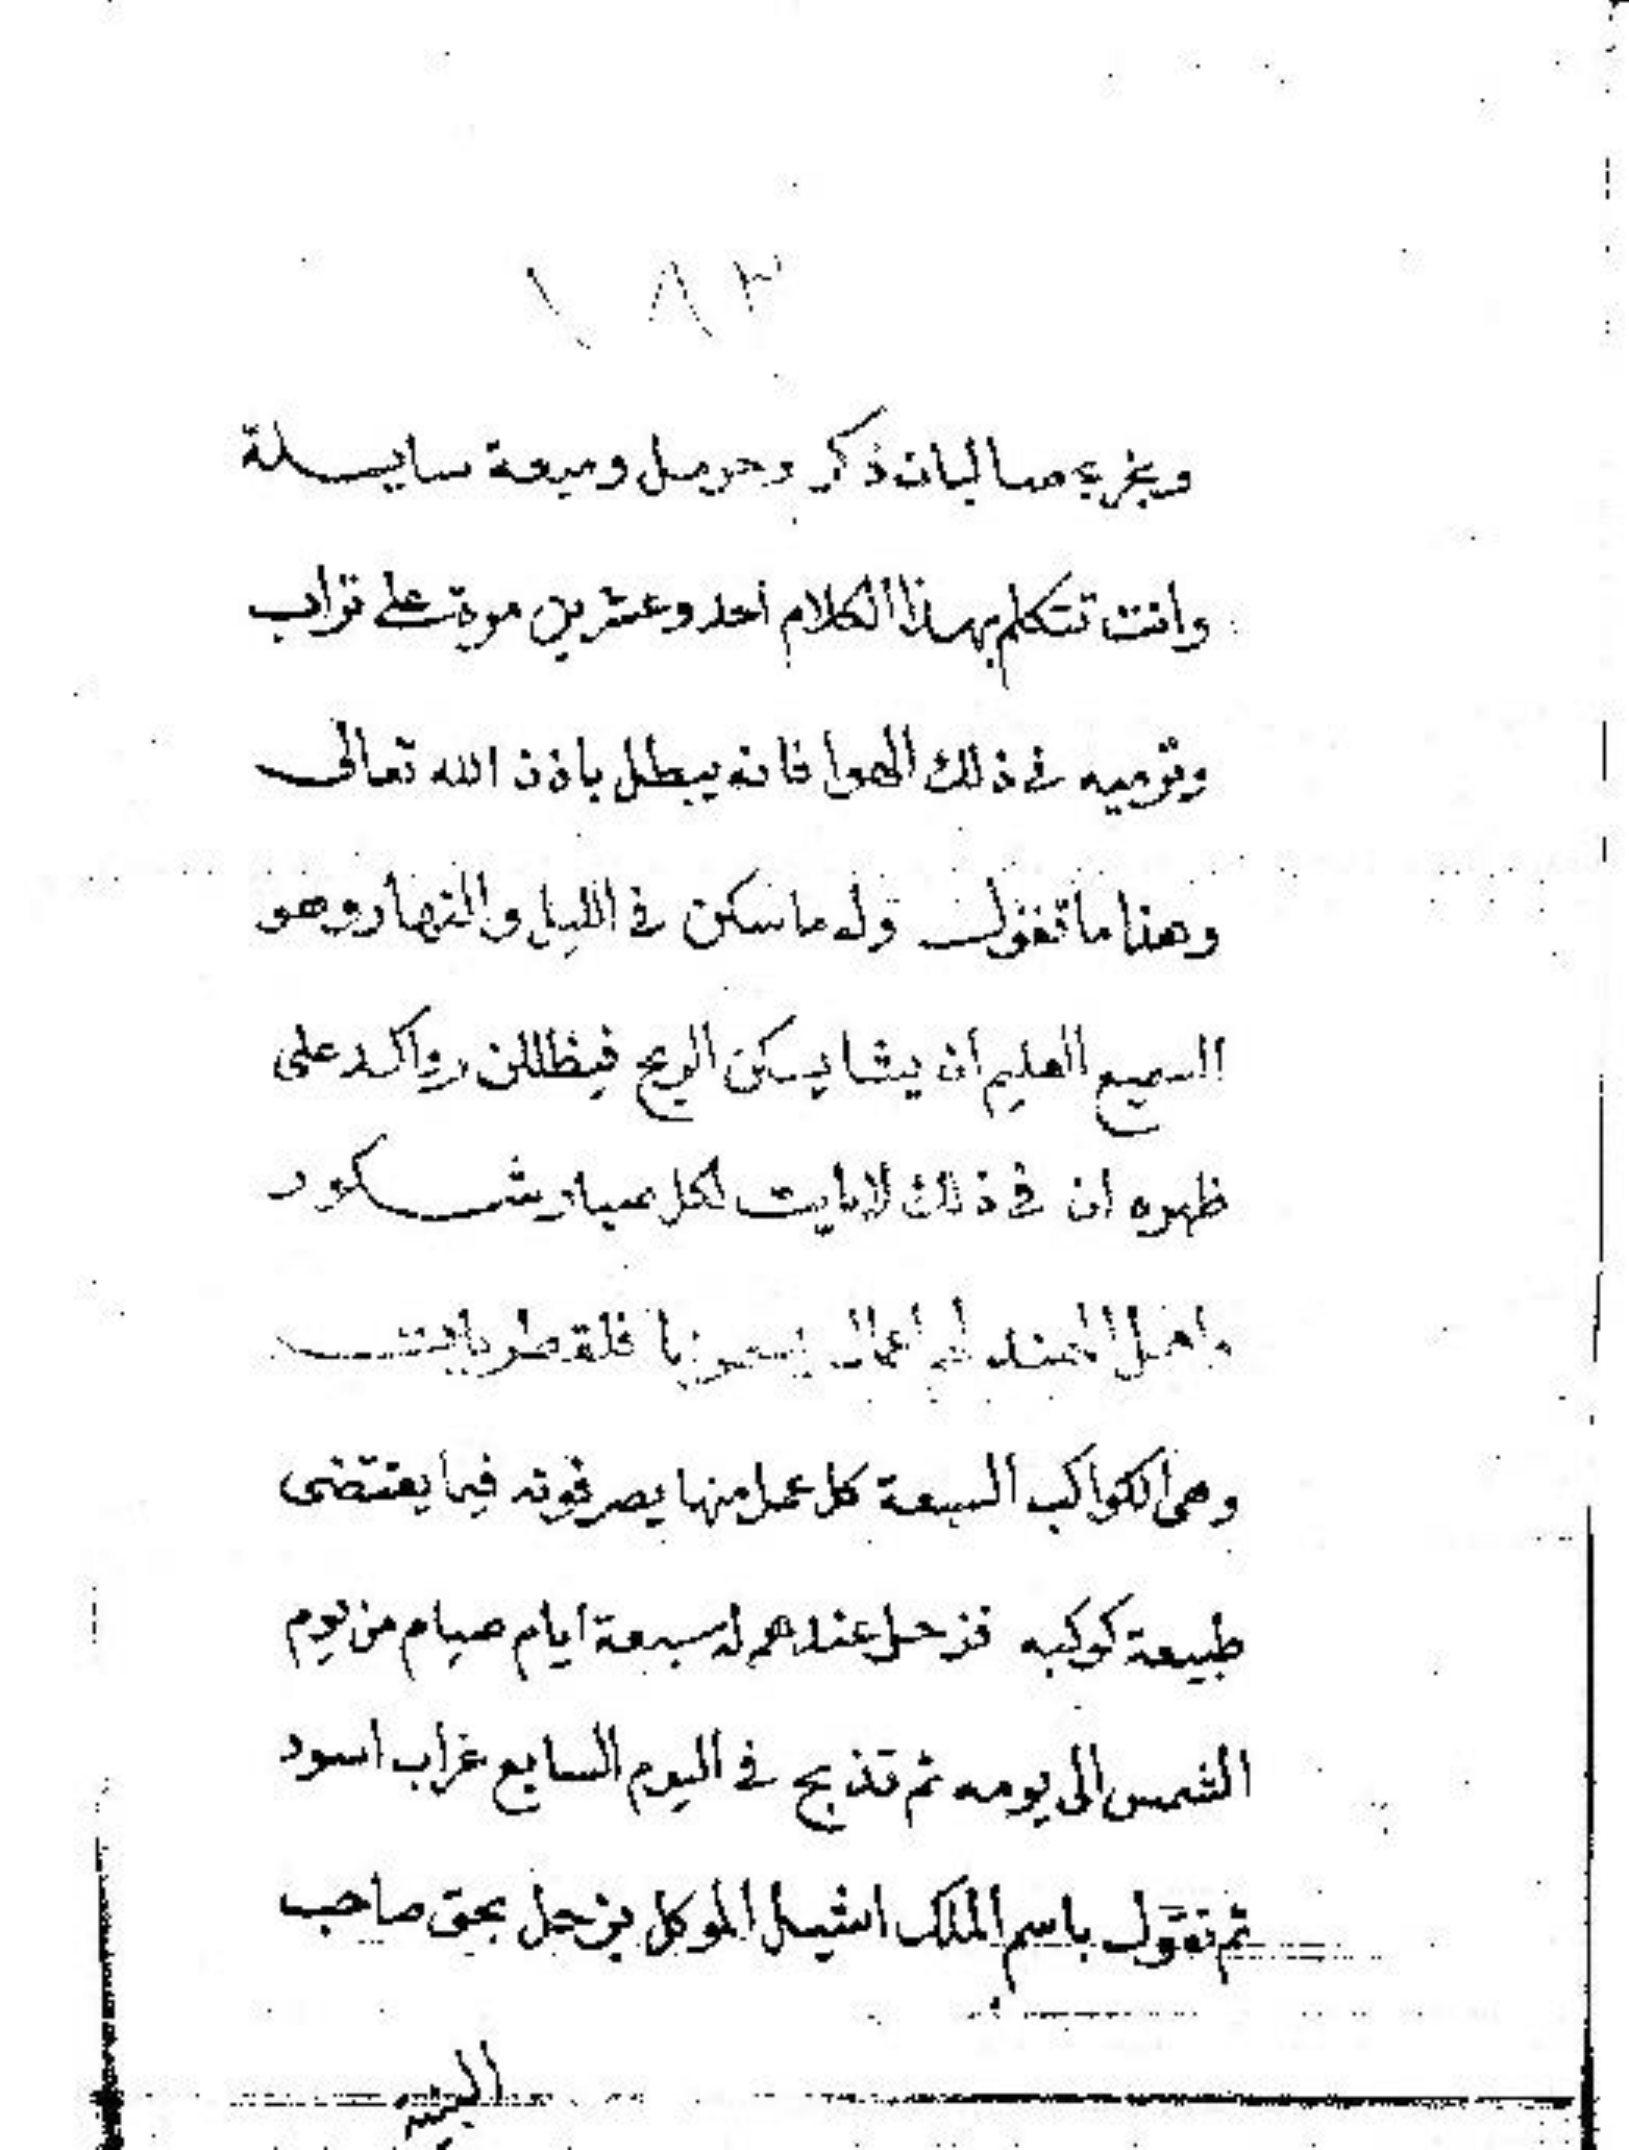 ١٨٣
وبخر بحصا لبان ذكر وحرمل وميعة سايلة
وانت تتكلم بهذا الكلام احد وعشرين مرة على تراب
وترميه في ذلك الهوا فانه يبطل باذن الله تعالى
وهذا ما تقول وله ما سكن في الليل والنهار وهو
السميع العليم ان يشا يسكن الريح فيظللن رواكد على
ظهره ان في ذلك لايات لكل صبار شكور
واهل الهند لهم اعمال يسمونها فلقطريات
وهى الكواكب السبعة كل عمل منها يصرفونه فيما يقتضى
طبيعة كوكبه فزحل عندهم له سبعة ايام صيام من يوم
الشمس الى يومه ثم تذبح في اليوم السابع غراب اسود
ثم تقول باسم الملك اشبيل الموكل بزحل بحق صاحب